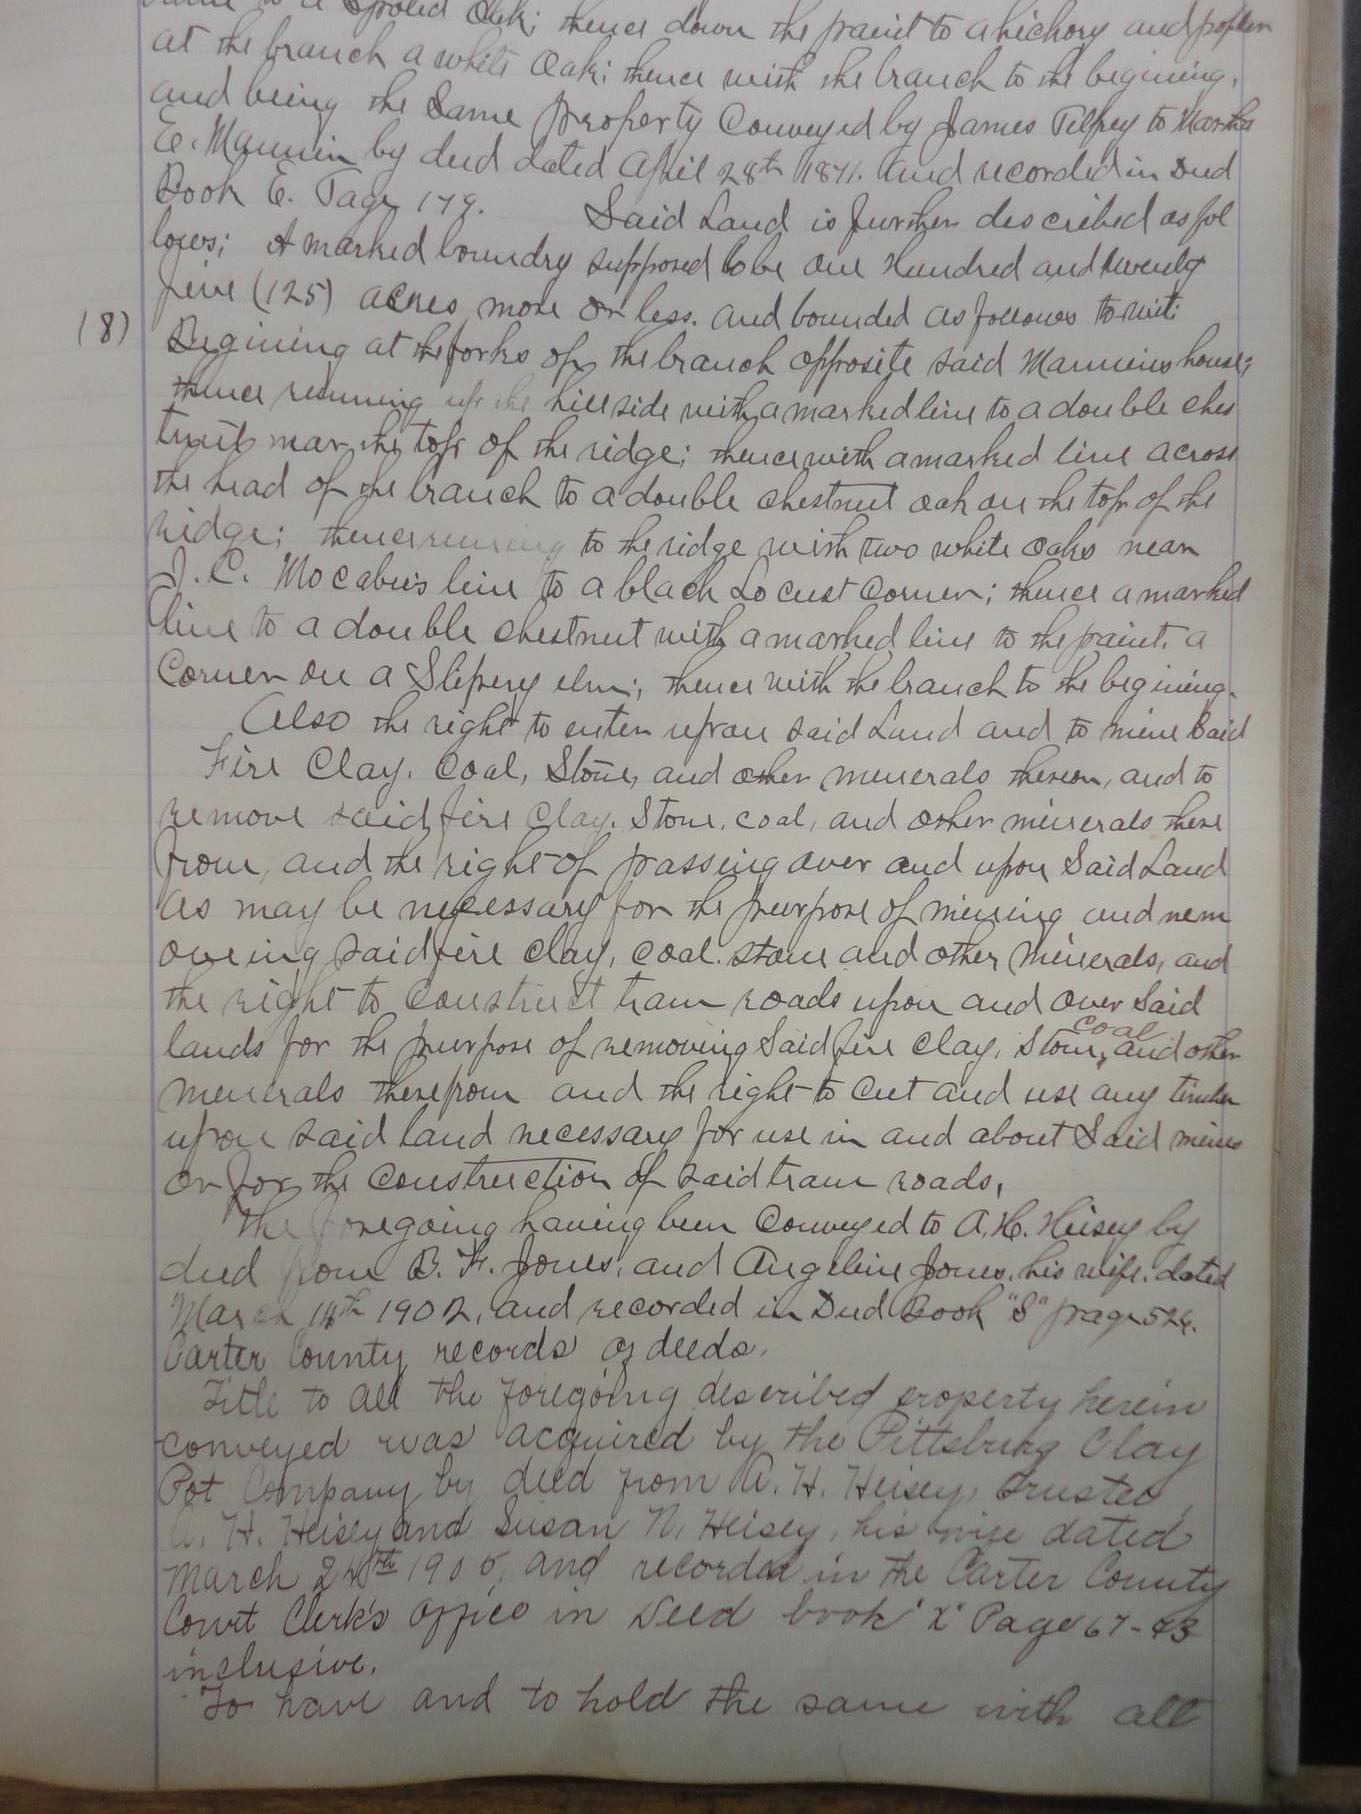 to a Spotted Oak; thence down the paint to a hickory and poplar
at the branch a white Oak; thence with the branch to the begining,
and being the Same property Conveyed by James Tilpey to Martha
E. Mannin by deed dated April 28th 1871. and recorded in Deed
Book E. Page 179. Said Land is further described as fol
lows; A marked boundry supposed to be one Hundred and twenty
five (125) acres more or less. and bounded as follows to wit:
(8) Begining at the forks of the branch opposite said Mannins house;
thence running up the hill side with a marked line to a double ches
tnut near the top of the ridge; thence with a marked line across
the head of the branch to a double chestnut oak on the top of the
ridge; thence running to the ridge with two white oaks near
J. C. Mocabee's line to a black Locust Corner; thence a marked
line to a double chestnut with a marked line to the paint. a
Corner on a Slipery elm; thence with the branch to the begining.
Also the right to enter upon said Land and to mine Said
Fire Clay, Coal, Stone, and other minerals thereon, and to
remove said fire Clay, Stone, coal, and other minerals there
from, and the right of passing over and upon Said Land
as may be necessary for the purpose of mining and rem
oveing said fire clay, coal. stone and other minerals, and
the right to Construct tram roads upon and over Said
lands for the purpose of removing Said fire Clay, Stone, coal and other
minerals therefrom and the right to cut and use any timber
upon said land necessary for use in and about Said mines
or for the construction of said tram roads,
The foregoing having been Conveyed to A. H. Heisey by
deed from B. F. Jones, and Angeline Jones, his wife, dated
March 18th 1902, and recorded in Deed Book "S" page 526.
Carter County records of deeds.
Title to all the foregoing described property herein
conveyed was acquired by the Pittsburg Clay
Pot Company by deed from A. H. Heisey, Trustee,
A. H. Heisey and Susan N. Heisey, his wife dated
March 24th 1905, and recorded in the Carter County
Court Clerk's Office in Deed book "X" Page 67-83
inclusive.
To have and to hold the same with all